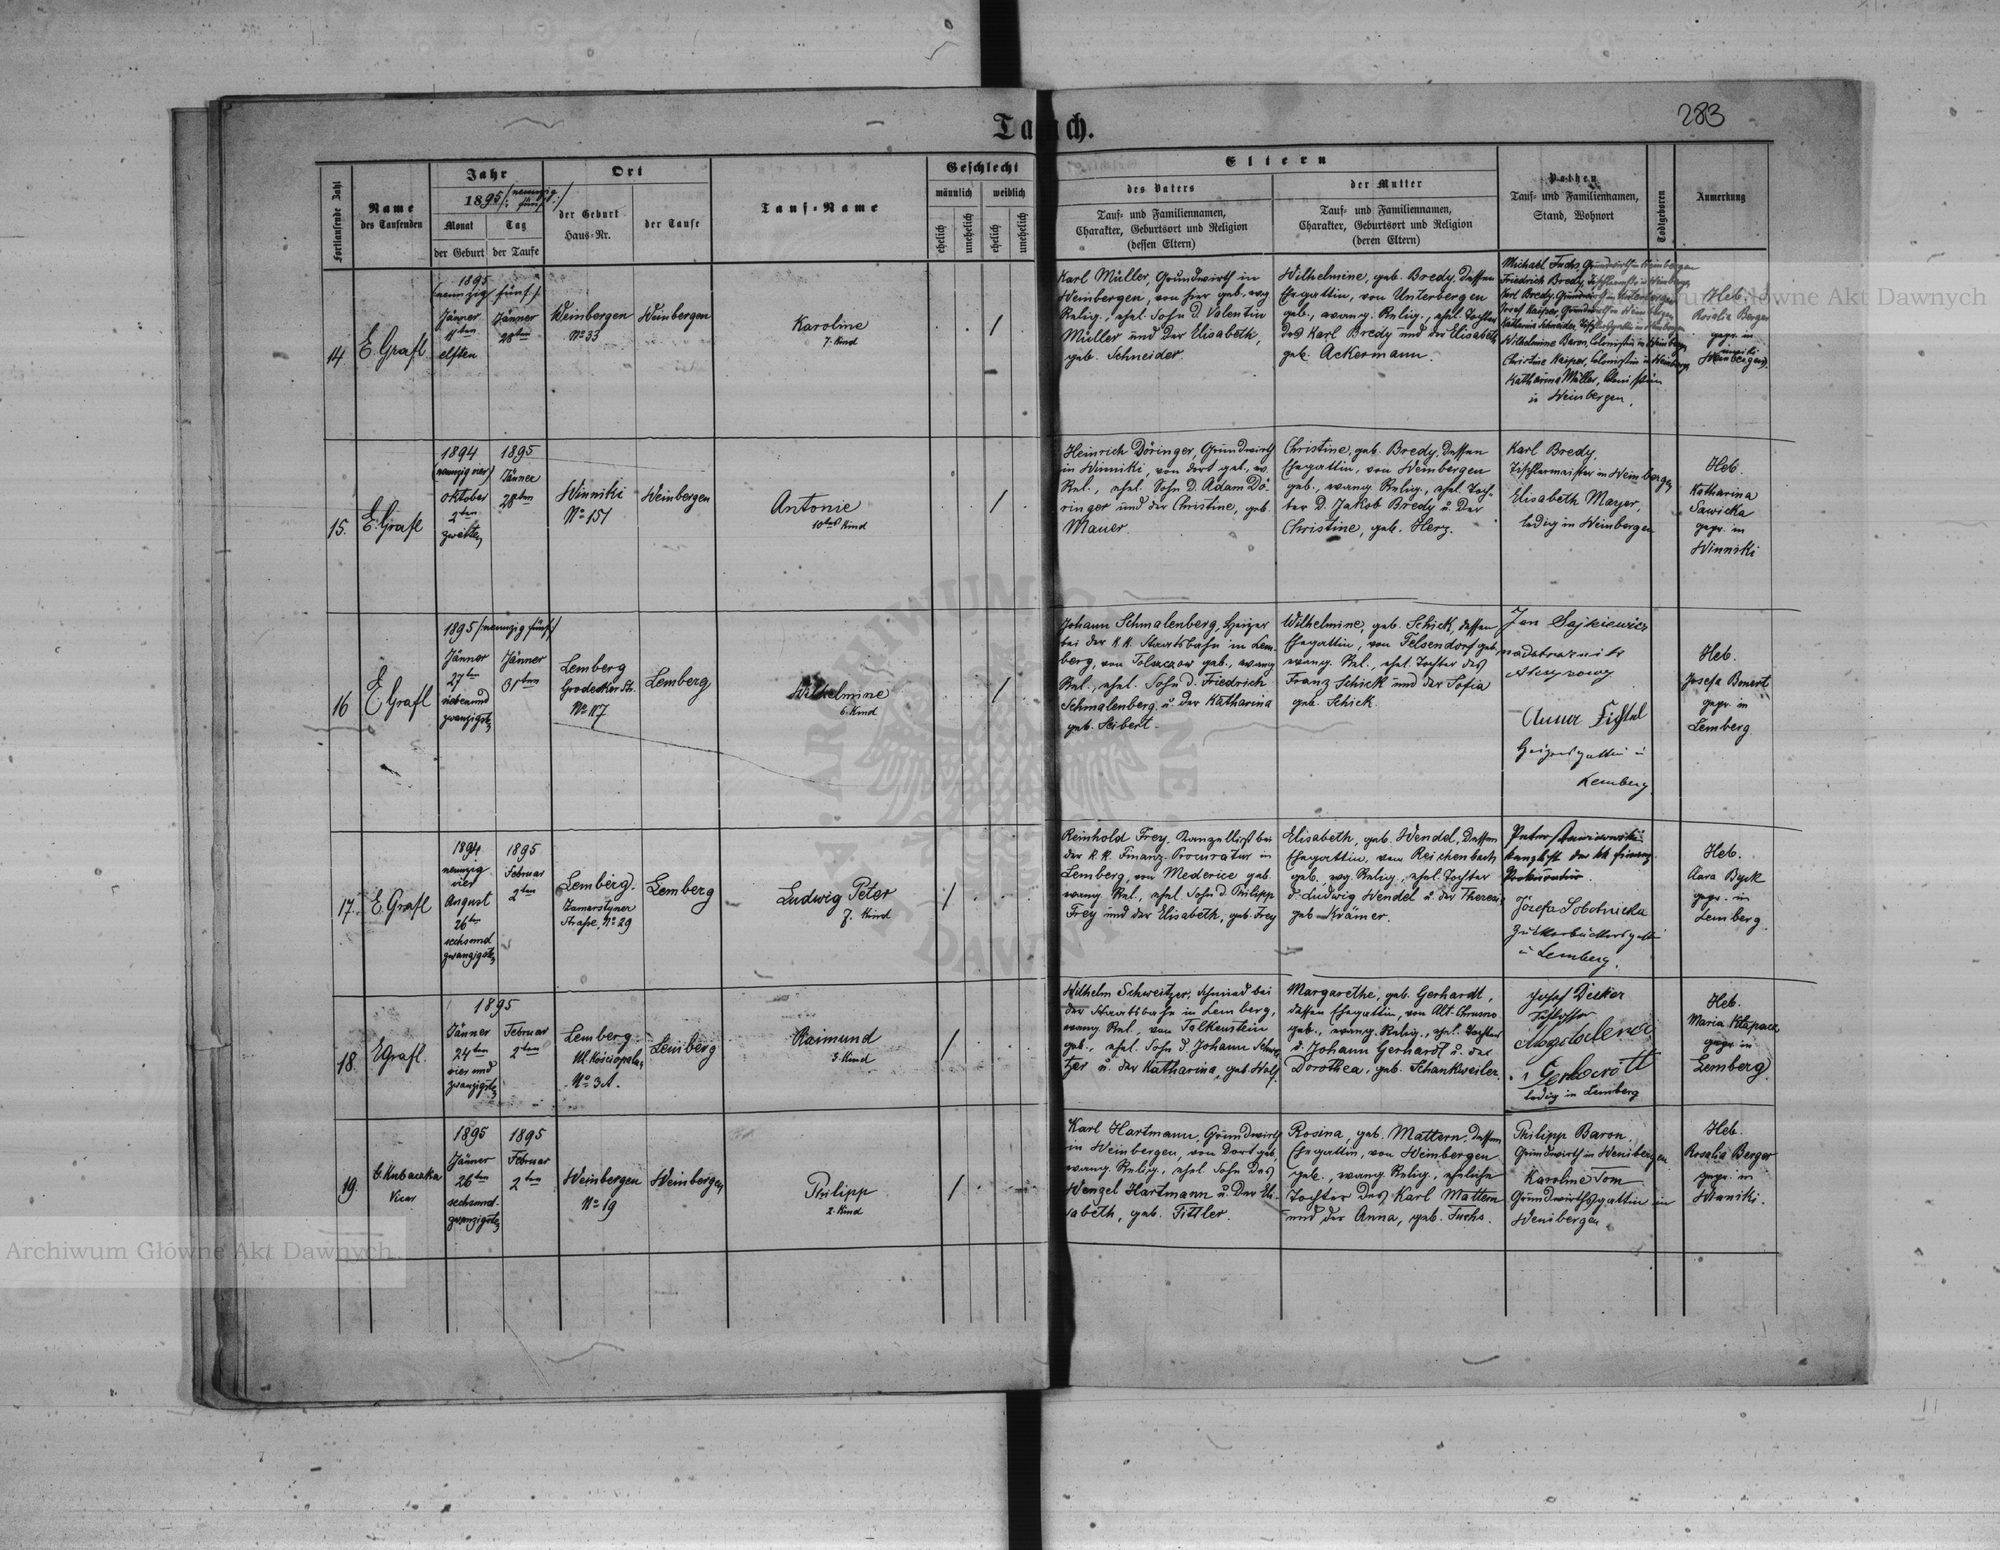 283
Taufbuch.
Fortlaufende Zahl
Name
des Taufenden
Jahr
1895 /: neunzig
fünf :/
Monat
Tag
der Geburt
der Taufe
Ort
der Geburt
Haus-Nr.
der Taufe
Tauf-Name
Geschlecht
männlich
weiblich
ehelich
unehelich
ehelich
unehelich
Eltern
des Vaters
Tauf- und Familiennamen,
Charakter, Geburtsort und Religion
(dessen Eltern)
der Mutter
Tauf- und Familiennamen,
Charakter, Geburtsort und Religion
(deren Eltern)
Pathen
Tauf- und Familiennamen,
Stand, Wohnort
Todtgeboren
Anmerkung
14.
E. Grafl
1895
(neunzig fünf).
Jänner
11ten
elften
Jänner
28ten
Weinbergen
No 33
Weinbergen
Karoline
7. Kind
/
Karl Müller, Grundwirth in
Weinbergen, von hier geb., evg
Relig., ehel. Sohn d. Valentin
Müller und der Elisabeth,
geb. Schneider.
Wilhelmine, geb. Bredy, dessen
Ehegattin, von Unterbergen
geb., evang. Relig., ehel. Tochter
des Karl Bredy und der Elisabeth
geb. Ackermann.
Michael Fuchs, Grundwirth in Weinbergen
Friedrich Bredy, Tischlermstr. in Weinbergen,
Karl Bredy, Grundwirth in Unterbergen
Josef Kaiper, Grundwirth in Weinbergen,
Katharina Schneider,
Wilhelmine Baron, Colonistin in Weinbergen,
Christine Kaiper, Colonistin in Weinbergen,
Katharina Müller, Colonistin
in Weinbergen.
Heb.
Rosalia Berger
gepr. in
Winniki
(Weinbergen).
15.
E. Grafl
1894
(neunzig vier)
Oktober
2ten
zweiten
1895
Jänner
28ten
Winniki
No 151
Weinbergen
Antonie
10tes Kind
/
Heinrich Döringer, Grundwirth
in Winniki, von dort geb., ev.
Rel., ehel. Sohn d. Adam Dö-
ringer und der Christine, geb.
Mauer.
Christine, geb. Bredy, dessen
Ehegattin, von Weinbergen
geb., evang. Relig., ehel. Toch-
ter d. Jakob Bredy u. der
Christine, geb. Herz.
Karl Bredy,
Tischlermeister in Weinbergen
Elisabeth Mayer,
ledig in Weinbergen
Heb.
Katharina
Sawicka
gepr. in
Winniki
16
E Grafl
1895 /: neunzig fünf :/
Jänner
27ten
siebenund
zwanzigsten
Jänner
31ten
Lemberg
Grodecker Str.
No 117
Lemberg
Wilhelmine
6. Kind
/
Johann Schmalenberg, Heizer
bei der k.k. Staatsbahn in Lem-
berg, von Tolszczow geb., evang
Rel., ehel. Sohn d. Friedrich
Schmalenberg u. der Katharina
geb. Seibert.
Wilhelmine, geb. Schick, dessen
Ehegattin, von Felsendorf geb,
evang. Rel., ehel. Tochter des
Franz Schick und der Sofia
geb. Schick.
Jan Sajkiewicz
Anna Fichtel
Heizersgattin in
Lemberg
Heb.
Josefa Benert
gepr. in
Lemberg.
17.
E. Grafl
1894
neunzig
vier
August
26ten
sechsund
zwanzigsten
1895
Februar
2ten
Lemberg.
Zamarstyner
Strasse, No 29
Lemberg
Ludwig Peter
7. Kind
/
Reinhold Frey, Kanzellist bei
der k.k. Finanz-Procuratur in
Lemberg, von Mederice geb.
evang Rel., ehel. Sohn d. Philipp
Frey und der Elisabeth, geb. Frey
Elisabeth, geb. Wendel, dessen
Ehegattin, von Reichenbach
geb., evg. Relig., ehel. Tochter
d. Ludwig Wendel u. der Theresia
geb. Krämer.
Kanzlist der kk Finanz
Prokuratur.
Józefa Sobotnicka
Zuckerbäckersgattin
in Lemberg.
Heb.
Aara Byck
gepr. in
Lemberg.
18.
E Grafl.
1895
Jänner
24ten
vier und
zwanzigsten
Februar
2ten
Lemberg.
No 3A.
Lemberg
Raimund
3. Kind
/
Wilhelm Schweitzer, Schmied bei
der Staatsbahn in Lemberg,
evang. Rel., von Falkenstein
geb., ehel. Sohn d. Johann Schwei-
tzer u. der Katharina, geb. Wolf.
Margarethe, geb. Gerhardt,
dessen Ehegattin, von Alt-Chrusno
geb., evang. Relig., ehel. Tochter
d. Johann Gerhardt u. der
Dorothea, geb. Schankweiler.
Josef Decker
Magdalena
Gerhardt
ledig in Lemberg
Heb.
Maria Kłapacz
gepr. in
Lemberg.
19.
G. Kubaczka
Vicar
1895
Jänner
26ten
sechsund
zwanzigsten
1895
Februar
2ten
Weinbergen
No 19
Weinbergen
Philipp
2. Kind
/
Karl Hartmann, Grundwirth
in Weinbergen, von dort geb.
evang. Relig., ehel Sohn des
Wenzel Hartmann u. der Eli-
sabeth, geb. Tittler.
Rosina, geb. Mattern, dessen
Ehegattin, von Weinbergen
geb., evang. Relig., eheliche
Tochter des Karl Mattern
und der Anna, geb. Fuchs.
Philipp Baron.
Grundwirth in Weinbergen
Karoline Tom
Grundwirthsgattin in
Weinbergen
Heb.
Rosalia Berger
gepr. in
Winniki.
Archiwum Główne Akt Dawnych
Archiwum Główne Akt Dawnych